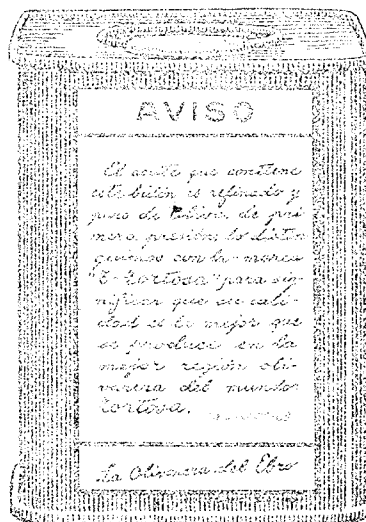 AVISO
El aceite que contiene
este bidón es refinado y
puro de oliva de pri-
mera presión; lo distin
guimos con la marca
"E-Tortosa" para sig-
nificar que su cali-
dad es la mejor que
se produce en la
mejor región oli-
varera del mundo:
Tortosa.
La Olivarera del Ebro